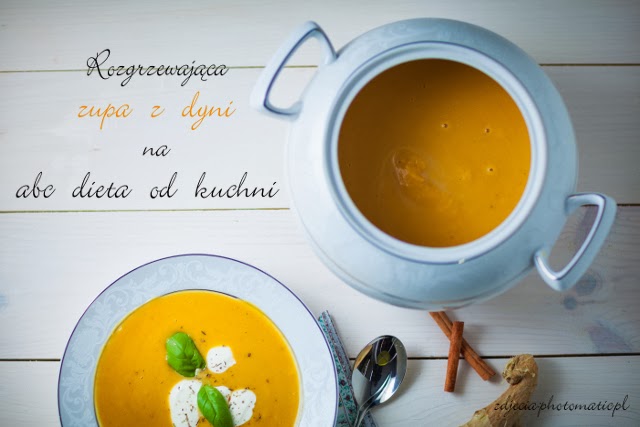 Rozgrzewająca
zupa z dyni
na
abc dieta od kuchni
zdjecia:photomatic.pl